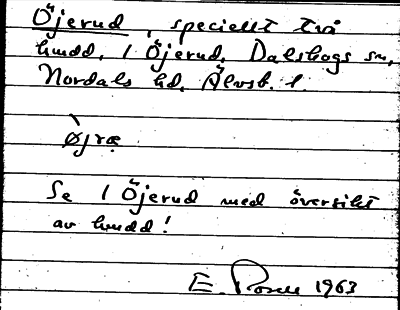 Öjerud, speciellt två
hmdd, 1 Öjerud, Dalskogs sn,
Nordals hd, Älvsb. l.
òjræ
Se 1 Öjerud med översikt
av hmdd!
E. Rosell 1963